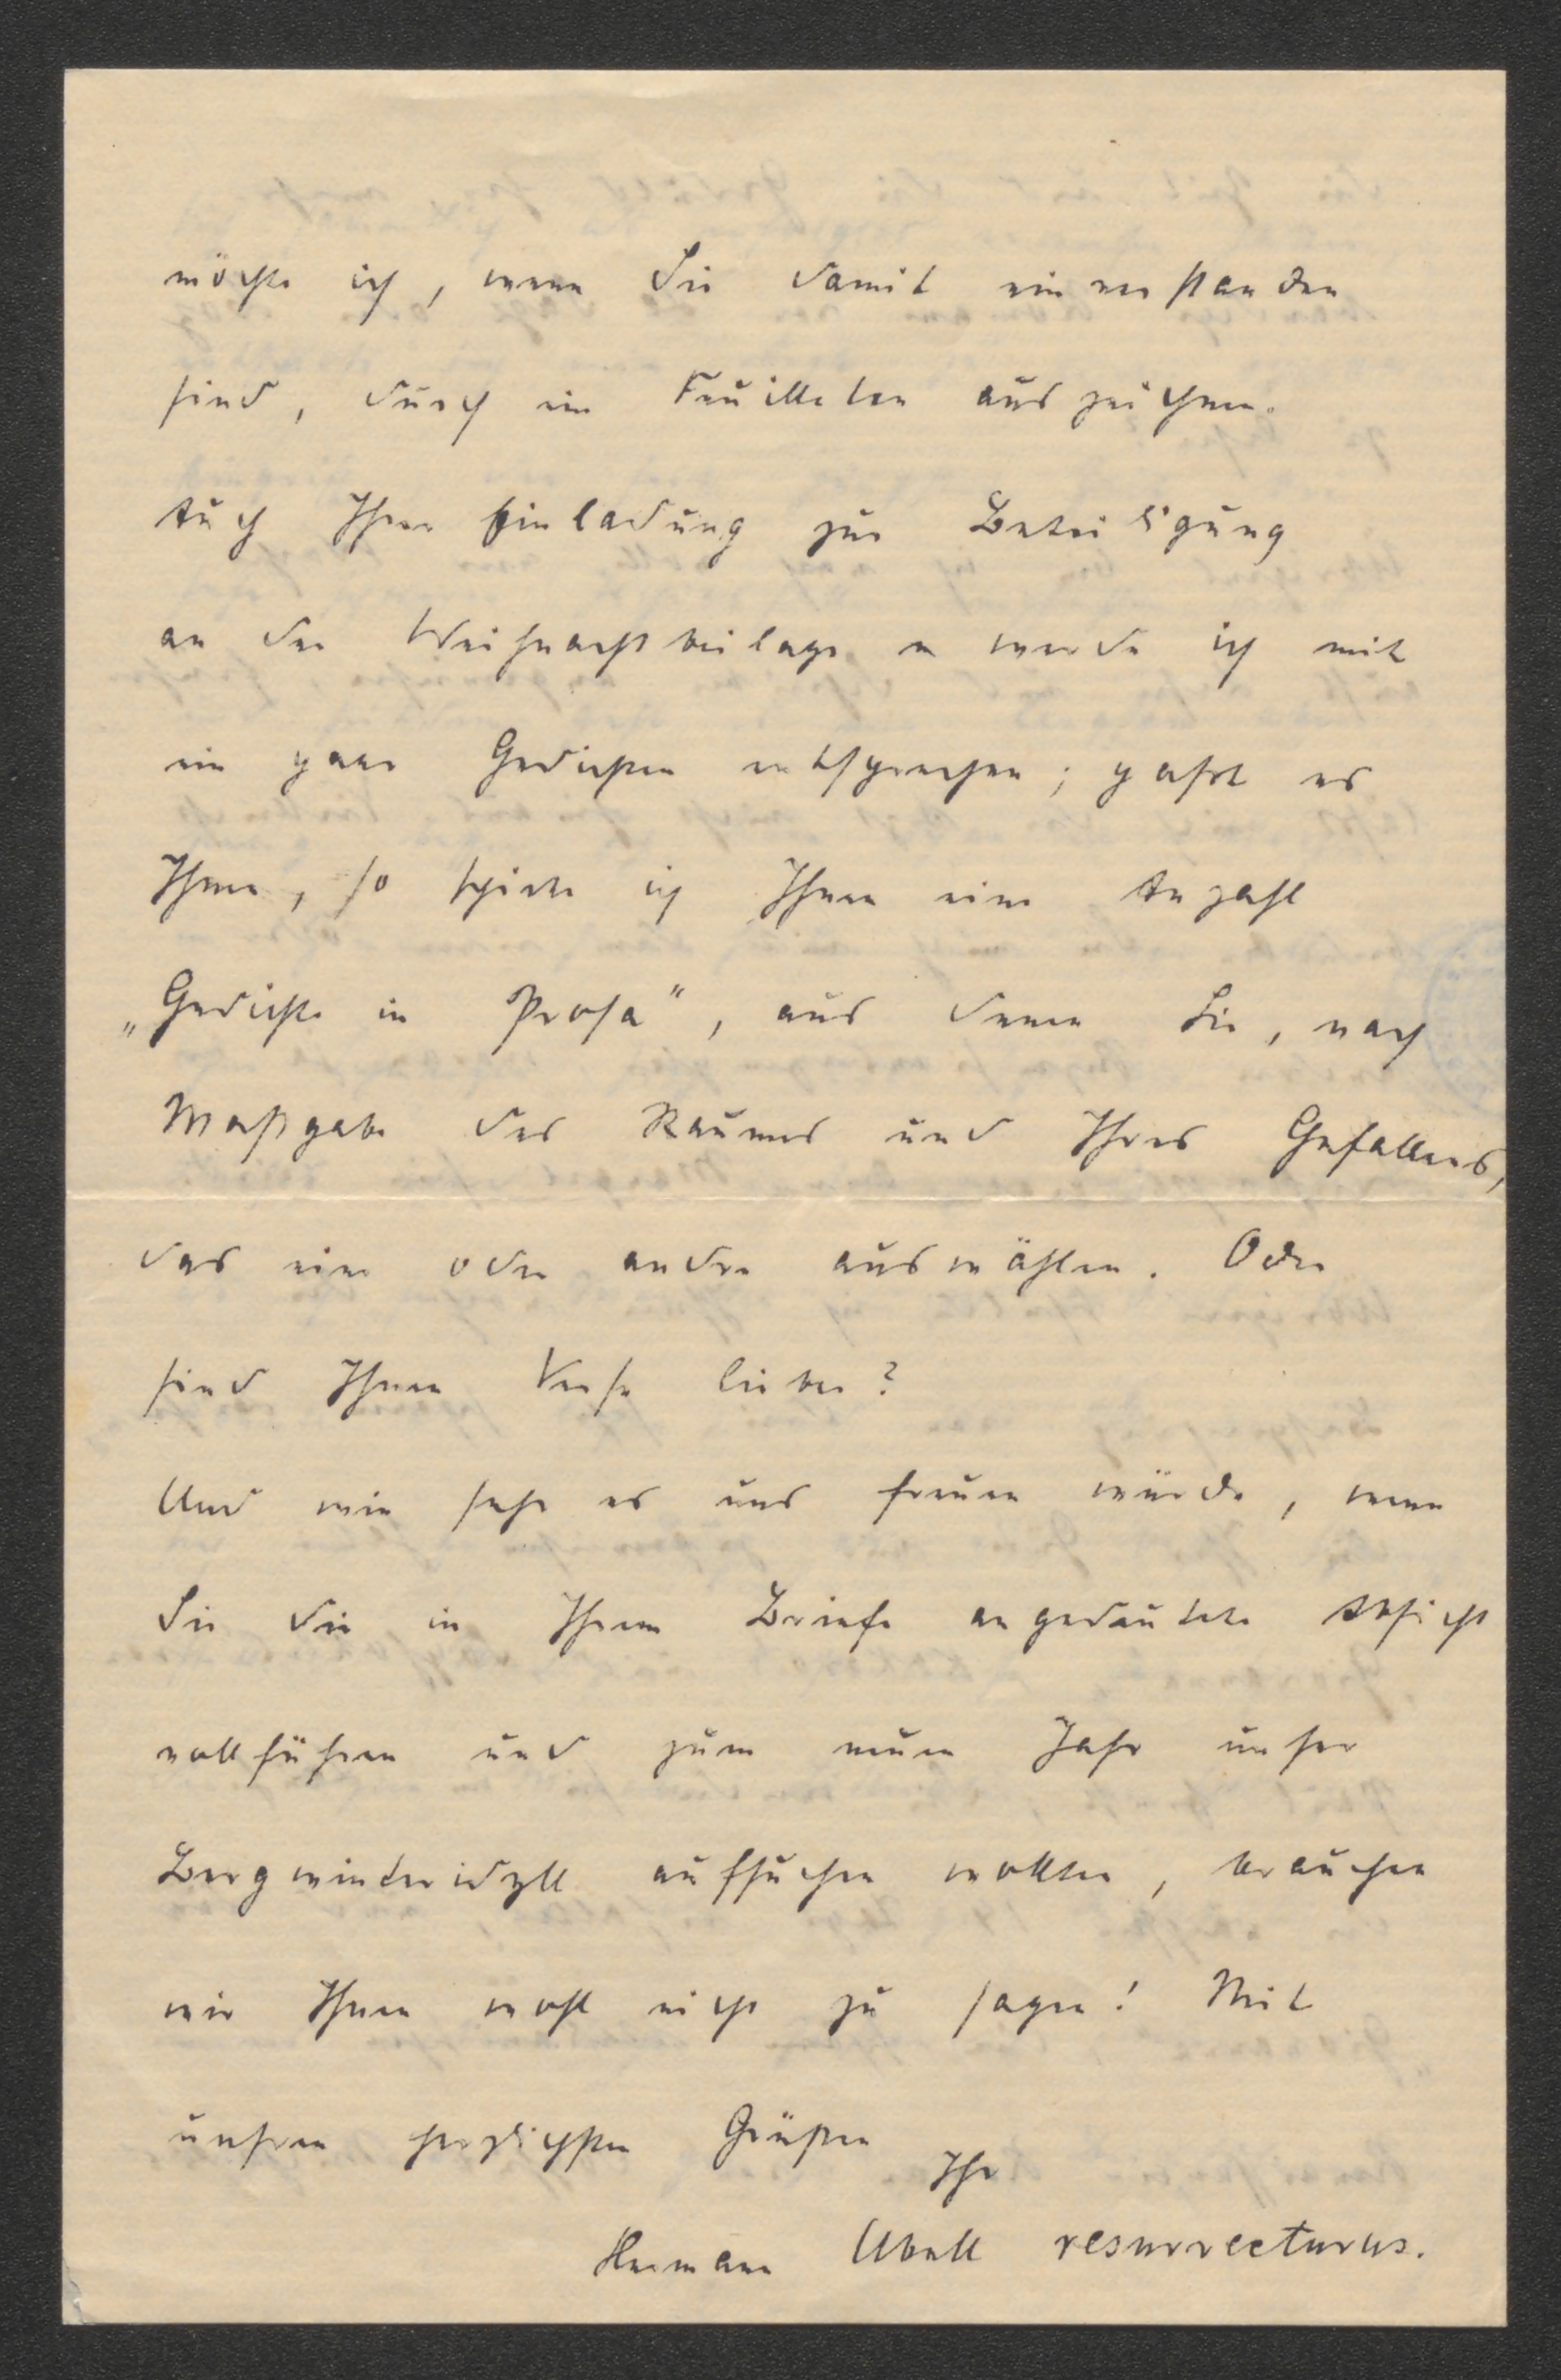 möchte ich, wenn Sie damit einverstanden
sind, durch ein Feuilleton auszeichnen.
Auch Ihrer Einladung zur Beteiligung
an der Weihnachtsbeilage werde ich mit
ein paar Gedichten entsprechen; paßt es
Ihnen, so schicke ich Ihnen eine Anzahl
„Gedichte in Prosa“, aus denen Sie, nach
Maßgabe des Raumes und Ihres Gefallens,
das eine oder andre auswählen. Oder
sind Ihnen Verse lieber?
Und wie sehr es uns freuen würde, wenn
Sie die in Ihrem Briefe angedeutete Absicht
vollführen und zum neuen Jahr unser
Bergwinteridyll aufsuchen wollten, brauchen
wir Ihnen wohl nicht zu sagen! Mit
unsren herzlichsten Grüßen
Ihr
Hermann Ubell resurrecturus.